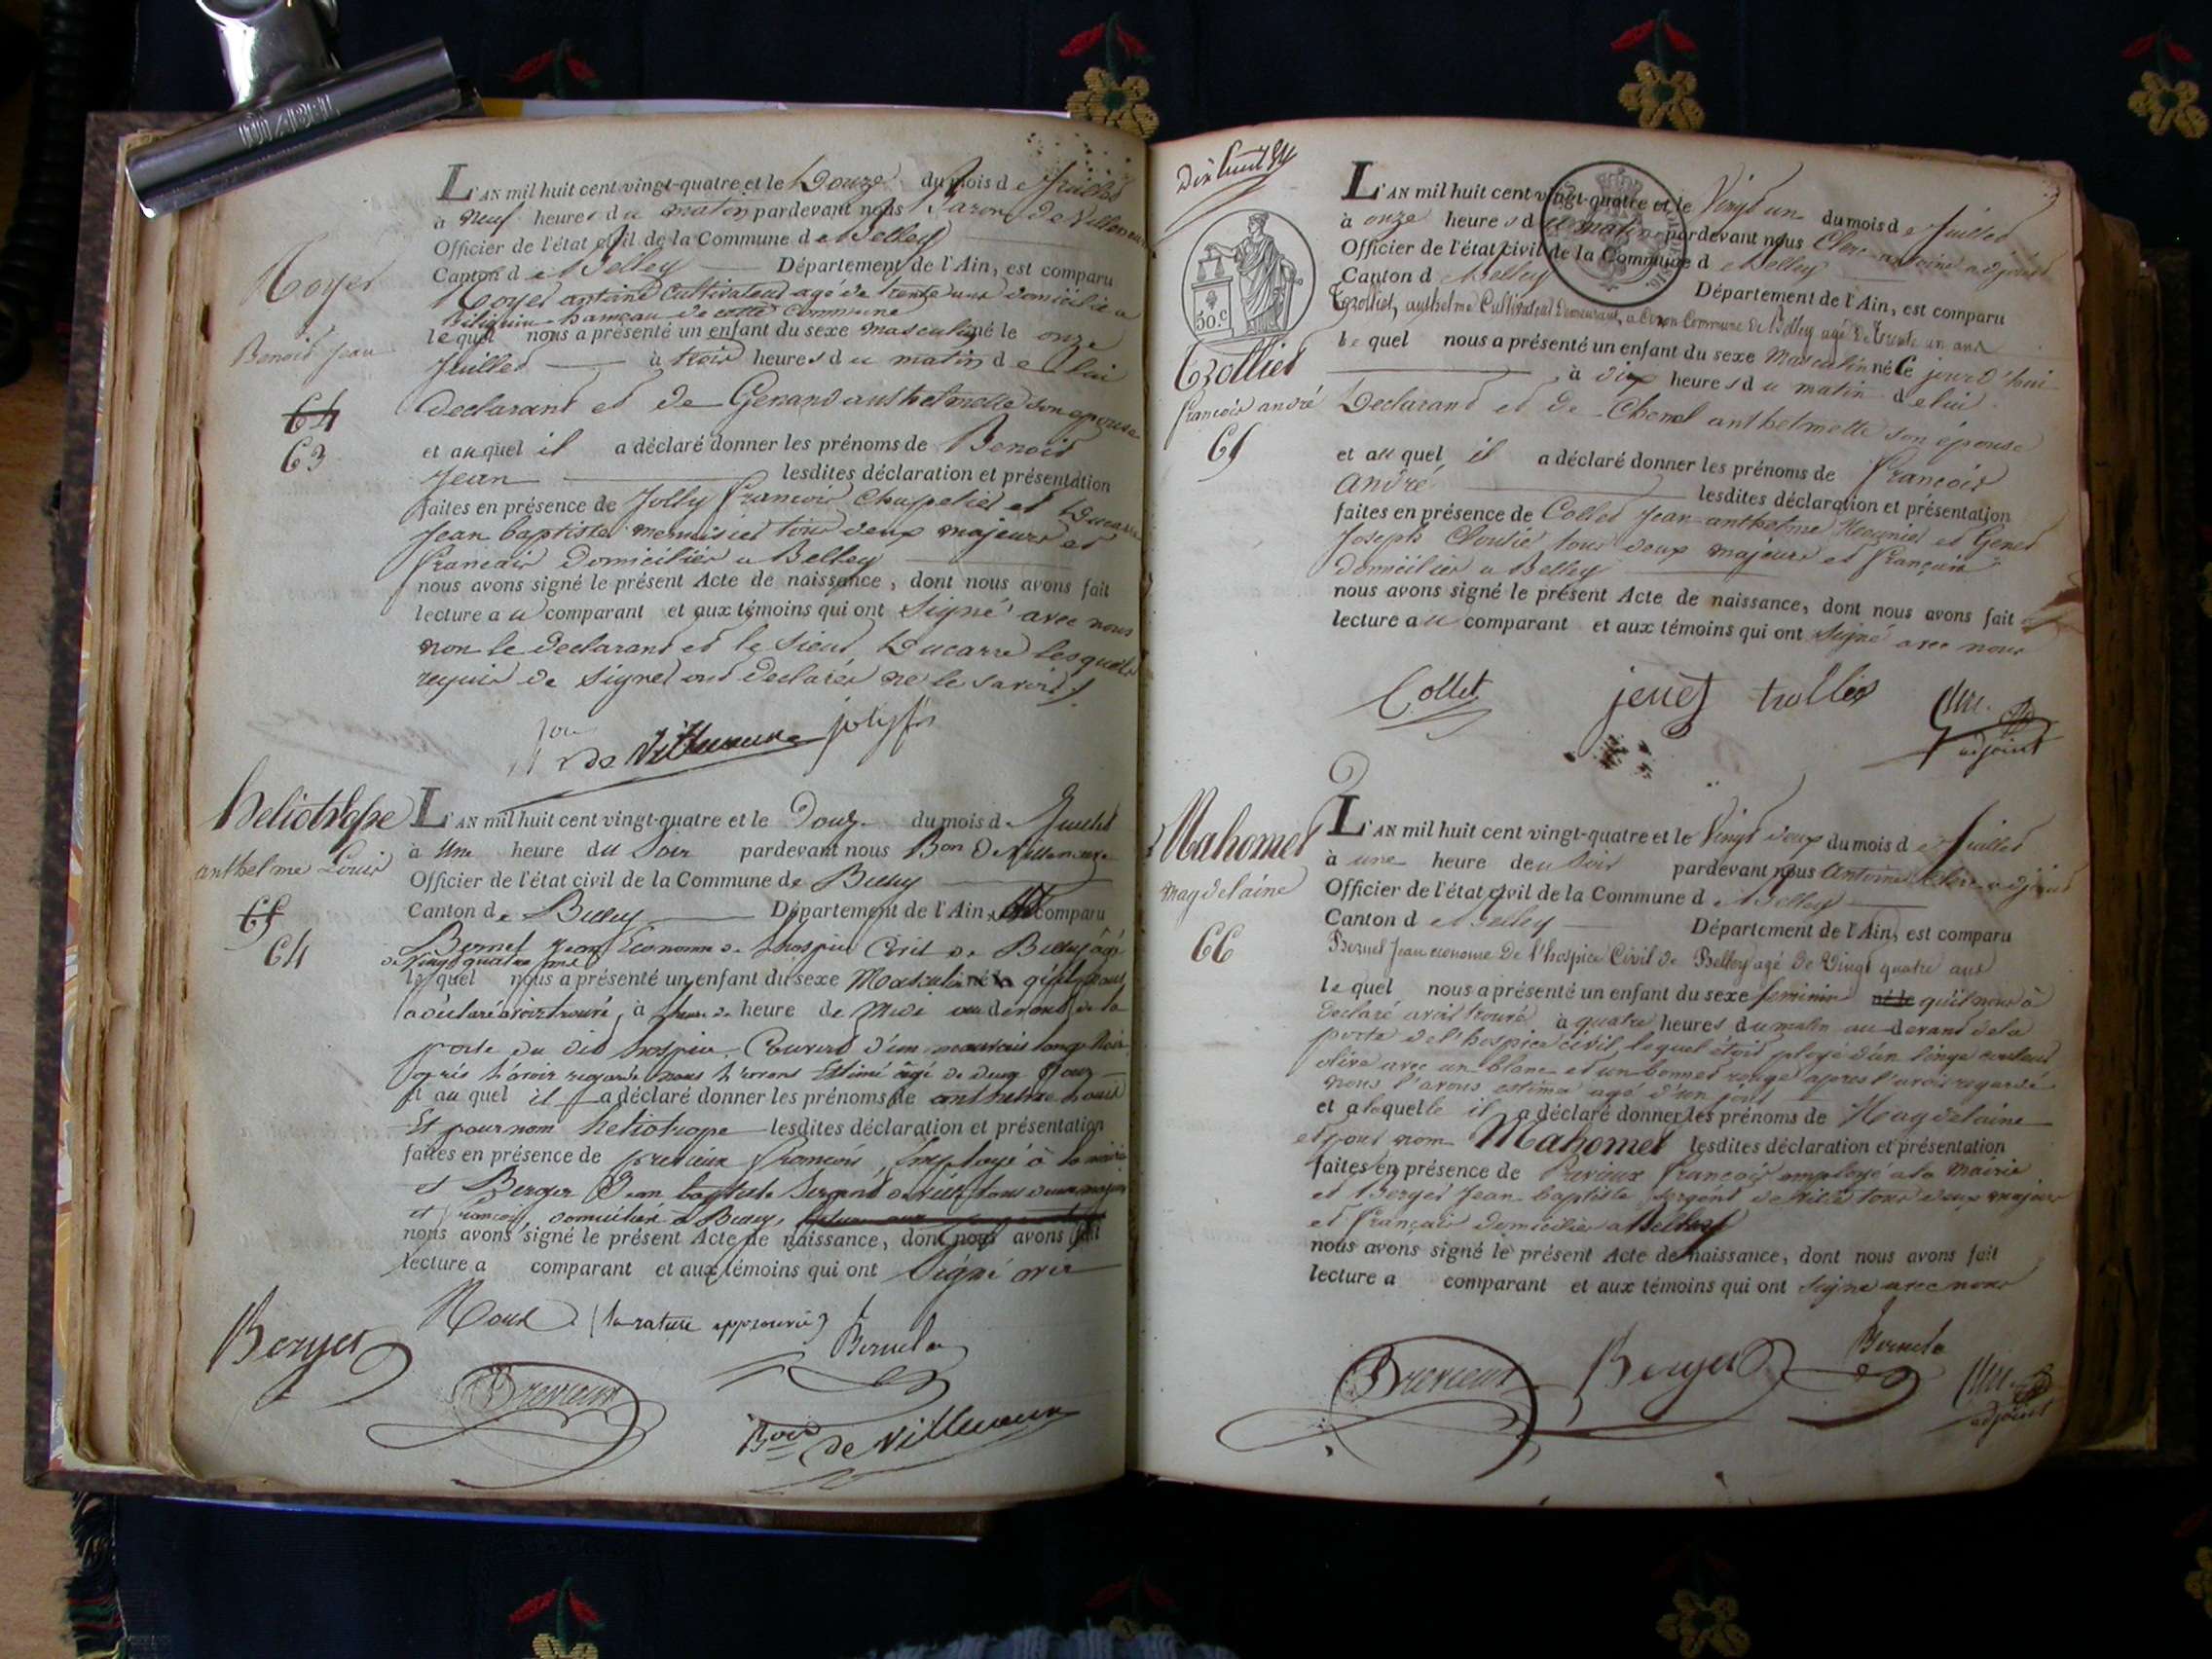 L'AN mil huit cent vingt-quatre et le Douze du mois de Juillet
à neuf heures du matin pardevant nous Baron de Villeneuve
Officier de l'état civil de la Commune de Belley
Canton de Belley Département de l'Ain, est comparu
Royer antoine Cultivateur agé de trente ans domicilié a
hameau de cette Commune
lequel nous a présenté un enfant du sexe masculin né le onze
Juillet à trois heures du matin de lui
Declarant et de Genand anthelmette son epouse
et auquel il a déclaré donner les prénoms de Benoit
Jean lesdites déclaration et présentation
faites en présence de Jolly francois Chapelier et Ducarre
Jean baptiste menuisier tous deux majeurs et
francais Domiciliés a Belley
nous avons signé le présent Acte de naissance, dont nous avons fait
lecture au comparant et aux témoins qui ont Signé avec nous
non le declarant et le Sieur Ducarre lesquels
requis de Signer ont declarés ne le savoir
Royer
Benoit Jean
64
63
de Villeneuve jolly fs
heliotrope
anthelme Louis
65
64
L'AN mil huit cent vingt-quatre et le Douze du mois de Juillet
à Une heure du Soir pardevant nous Bon De Villeneuve
Officier de l'état civil de la Commune de Belley
Canton de Belley Département de l'Ain, est comparu
Bernel Jean Econome de l'hospice Civil de Belley agé
de Vingt quatre ans
lequel nous a présenté un enfant du sexe Masculin né le qu'il nous
a déclaré avoir trouvé, à heure de Midi au devant de la
porte du dit hospice. Couvert d'un mauvais lange Noir
après l'avoir regardé nous l'avons Estimé agé de deux jours
et auquel il a déclaré donner les prénoms de anthelme Louis
Et pour nom heliotrope lesdites déclaration et présentation
faites en présence de previeux francois, Employé à la mairie
et Berger Jean baptiste Sergent de ville tous deux majeurs
et francais domiciliés à Belley,
nous avons signé le présent Acte de naissance, dont nous avons fait
lecture a comparant et aux témoins qui ont Signé avec
Nous (la rature approuvée)
Berger Previeux Bernel
Bon de Villeneuve
50.c
Trolliet
francois andré
65
L'AN mil huit cent vingt-quatre et le Vingt un du mois de Juillet
à onze heures du matin pardevant nous Clerc antoine adjoint
Officier de l'état civil de la Commune de Belley
Canton de Belley Département de l'Ain, est comparu
Trolliet, anthelme Cultivateur Demeurant, a Coron Commune de Belley agé de trente un ans
lequel nous a présenté un enfant du sexe Masculin né Ce jourd'hui
à dix heures du matin de lui
Declarant et de Chenel anthelmette son épouse
et auquel il a déclaré donner les prénoms de francois
andré lesdites déclaration et présentation
faites en présence de Collet Jean anthelme Meunier et Genet
Joseph Cloutié tous deux majeurs et français
domiciliés a Belley
nous avons signé le présent Acte de naissance, dont nous avons fait
lecture au comparant et aux témoins qui ont Signé avec nous
Collet jenet trolliet Clerc
adjoint
Mahomet
magdelaine
66
L'AN mil huit cent vingt-quatre et le Vingt deux du mois de Juillet
à une heure deu Soir pardevant nous Antoine Clerc adjoint
Officier de l'état civil de la Commune de Belley
Canton de Belley Département de l'Ain, est comparu
Bernel Jean econome De l'hospice Civil de Belley agé de Vingt quatre ans
lequel nous a présenté un enfant du sexe feminin né le qu'il nous à
declaré avoir trouvé à quatre heures du matin au devant de la
porte del'hospice civil, lequel étoit ployé d'un linge couleur
olive avec un blanc et un bonnet rouge apres l'avoir regardé
nous l'avons estimé agé d'un jour
et a laquelle il a déclaré donner les prénoms de Magdelaine
et pour nom Mahomet lesdites déclaration et présentation
faites en présence de Previeux francois employé a la Mairie
et Berger Jean baptiste Sergent de ville tous deux majeurs
et français domiciliés a Belley
nous avons signé le présent Acte de naissance, dont nous avons fait
lecture a comparant et aux témoins qui ont Signé avec nous
Previeux Berger Bernel Clerc
adjoint